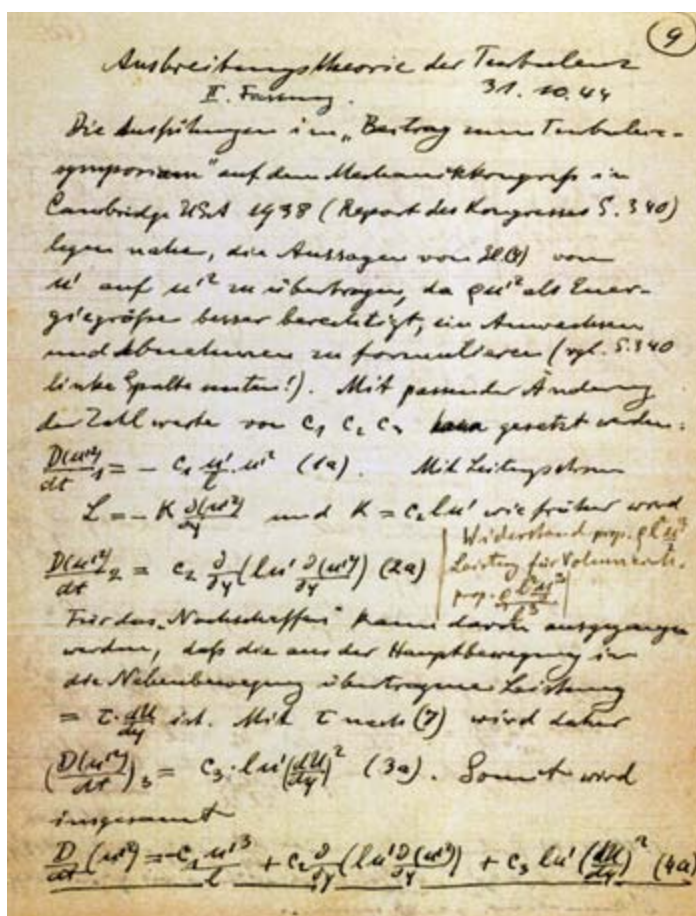 9
Ausbreitungstheorie der Turbulenz
II. Fassung. 31. 10. 44
Die Ausführungen im „Beitrag zum Turbulenz-
symposium" auf dem Mechanikkongreß in
Cambridge USA 1938 (Report des Kongresses S. 340)
legen nahe, die Aussagen von von
u' auf u'² zu übertragen, da ρu'² als Ener-
giegröße besser berechtigt, ein Anwachsen
und Abnehmen zu formulieren (vgl. S. 340
linke Spalte unten!). Mit passender Änderung
der Zahlwerte von c₁ c₂ c₃ kann gesetzt werden:
D(u'²)/dt ₁ = - c₁ u'/l · u'² (1a). Mit Leitungsstrom
L = - K ∂(u'²)/∂y und K = c₂ l u' wie früher wird
D(u'²)/dt ₂ = c₂ ∂/∂y (l u' ∂(u'²)/∂y) (2a)
Widerstand prop.
Leistung für Volumeneinh.
prop.
Für das „Nachschaffen" kann davon ausgegangen
werden, daß die aus der Hauptbewegung in
die Nebenbewegung übertragene Leistung
= τ · dU/dy ist. Mit τ nach (7) wird daher
(D(u'²)/dt)₃ = c₃ · l u' (dU/dy)² (3a). Somit wird
insgesamt
D/dt (u'²) = - c₁ u'³/l + c₂ ∂/∂y (l u' ∂(u'²)/∂y) + c₃ l u' (dU/dy)² (4a)